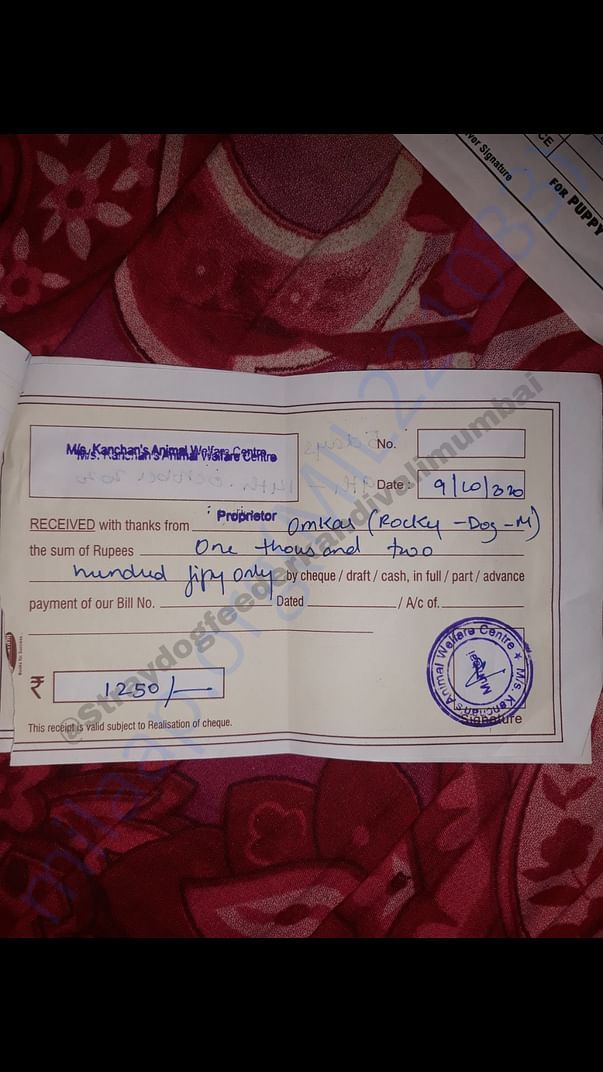 CE
ver Signature
FOR PUPPY
M/s. Kanchan's Animal Welfare Centre
M/s. Kanchan's Animal Welfare Centre
No.
Date : 9/10/2020
Proprietor
RECEIVED with thanks from Omkar (Rocky - Dog - M)
the sum of Rupees One thousand two
hundred fipy only by cheque / draft / cash, in full / part / advance
payment of our Bill No. Dated / A/c of.
₹ 1250/-
M/s. Kanchan's Animal Welfare Centre ★
Mumbai
Signature
This receipt is valid subject to Realisation of cheque.
@straydogfeederkandivalimumbai